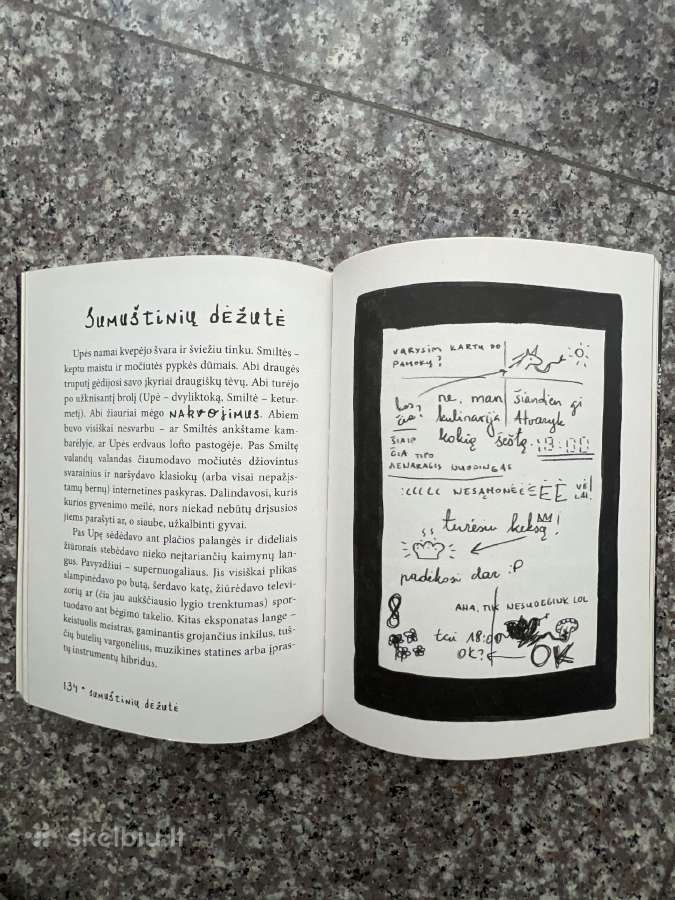 SUMUŠTINIŲ DĖŽUTĖ
Upės namai kvepėjo švara ir šviežiu tinku. Smiltės –
keptu maistu ir močiutės pypkės dūmais. Abi draugės
truputį gėdijosi savo įkyriai draugiškų tėvų. Abi turėjo
po užknisantį brolį (Upė – dvyliktoką, Smiltė – ketur-
metį). Abi žiauriai mėgo NAKVOJIMUS. Abiem
buvo visiškai nesvarbu – ar Smiltės ankštame kam-
barėlyje, ar Upės erdvaus lofto pastogėje. Pas Smiltę
valandų valandas čiaumodavo močiutės džiovintus
svarainius ir naršydavo klasiokų (arba visai nepažįs-
tamų bernų) internetines paskyras. Dalindavosi, kuris
kurios gyvenimo meilė, nors niekad nebūtų drįsusios
jiems parašyti ar, o siaube, užkalbinti gyvai.
Pas Upę sėdėdavo ant plačios palangės ir dideliais
žiūronais stebėdavo nieko neįtariančių kaimynų lan-
gus. Pavyzdžiui – supernuogaliaus. Jis visiškai plikas
slampinėdavo po butą, šerdavo katę, žiūrėdavo televi-
zorių ar (čia jau aukščiausio lygio trenktumas) spor-
tuodavo ant bėgimo takelio. Kitas eksponatas lange –
keistuolis meistras, gaminantis grojančius inkilus, tuš-
čių butelių vargonėlius, muzikines statines arba įpras-
tų instrumentų hibridus.
134 • SUMUŠTINIŲ DĖŽUTĖ
VARYSIM KARTU PO
PAMOKŲ?
ne, man šiandien gi
kulinarija Atvaryk
kokią šeštą.
18:00
ŠIAIP
ČIA TIPO
:((((( NESĄMONĖĖĖĖĖ VĖ
LAI!
turėsiu keksą!
padėkosi dar :P
AHA. TIK NESUDEGINK LOL
tai 18:00
OK? OK
skelbiu.lt